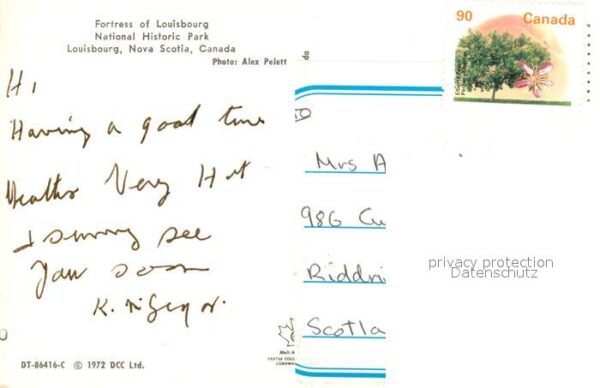 Fortress of Louisbourg
National Historic Park
Louisbourg, Nova Scotia, Canada
Photo: Alex Pelett
Hi
Having a good time
Weather Very Hot
& sunny see
you soon
K.
DT-86416-C © 1972 DCC Ltd.
do
90 Canada
Mrs A
986 Cu
Riddri
Scotla
privacy protection
Datenschutz